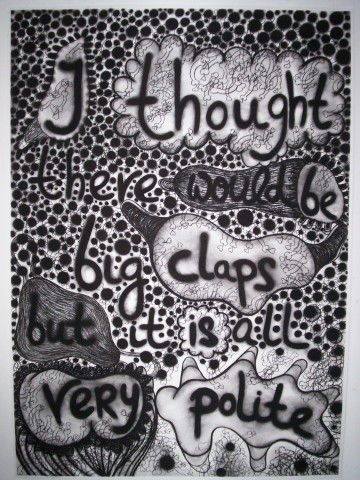 I thought
there would be
big claps
but it is all
very polite